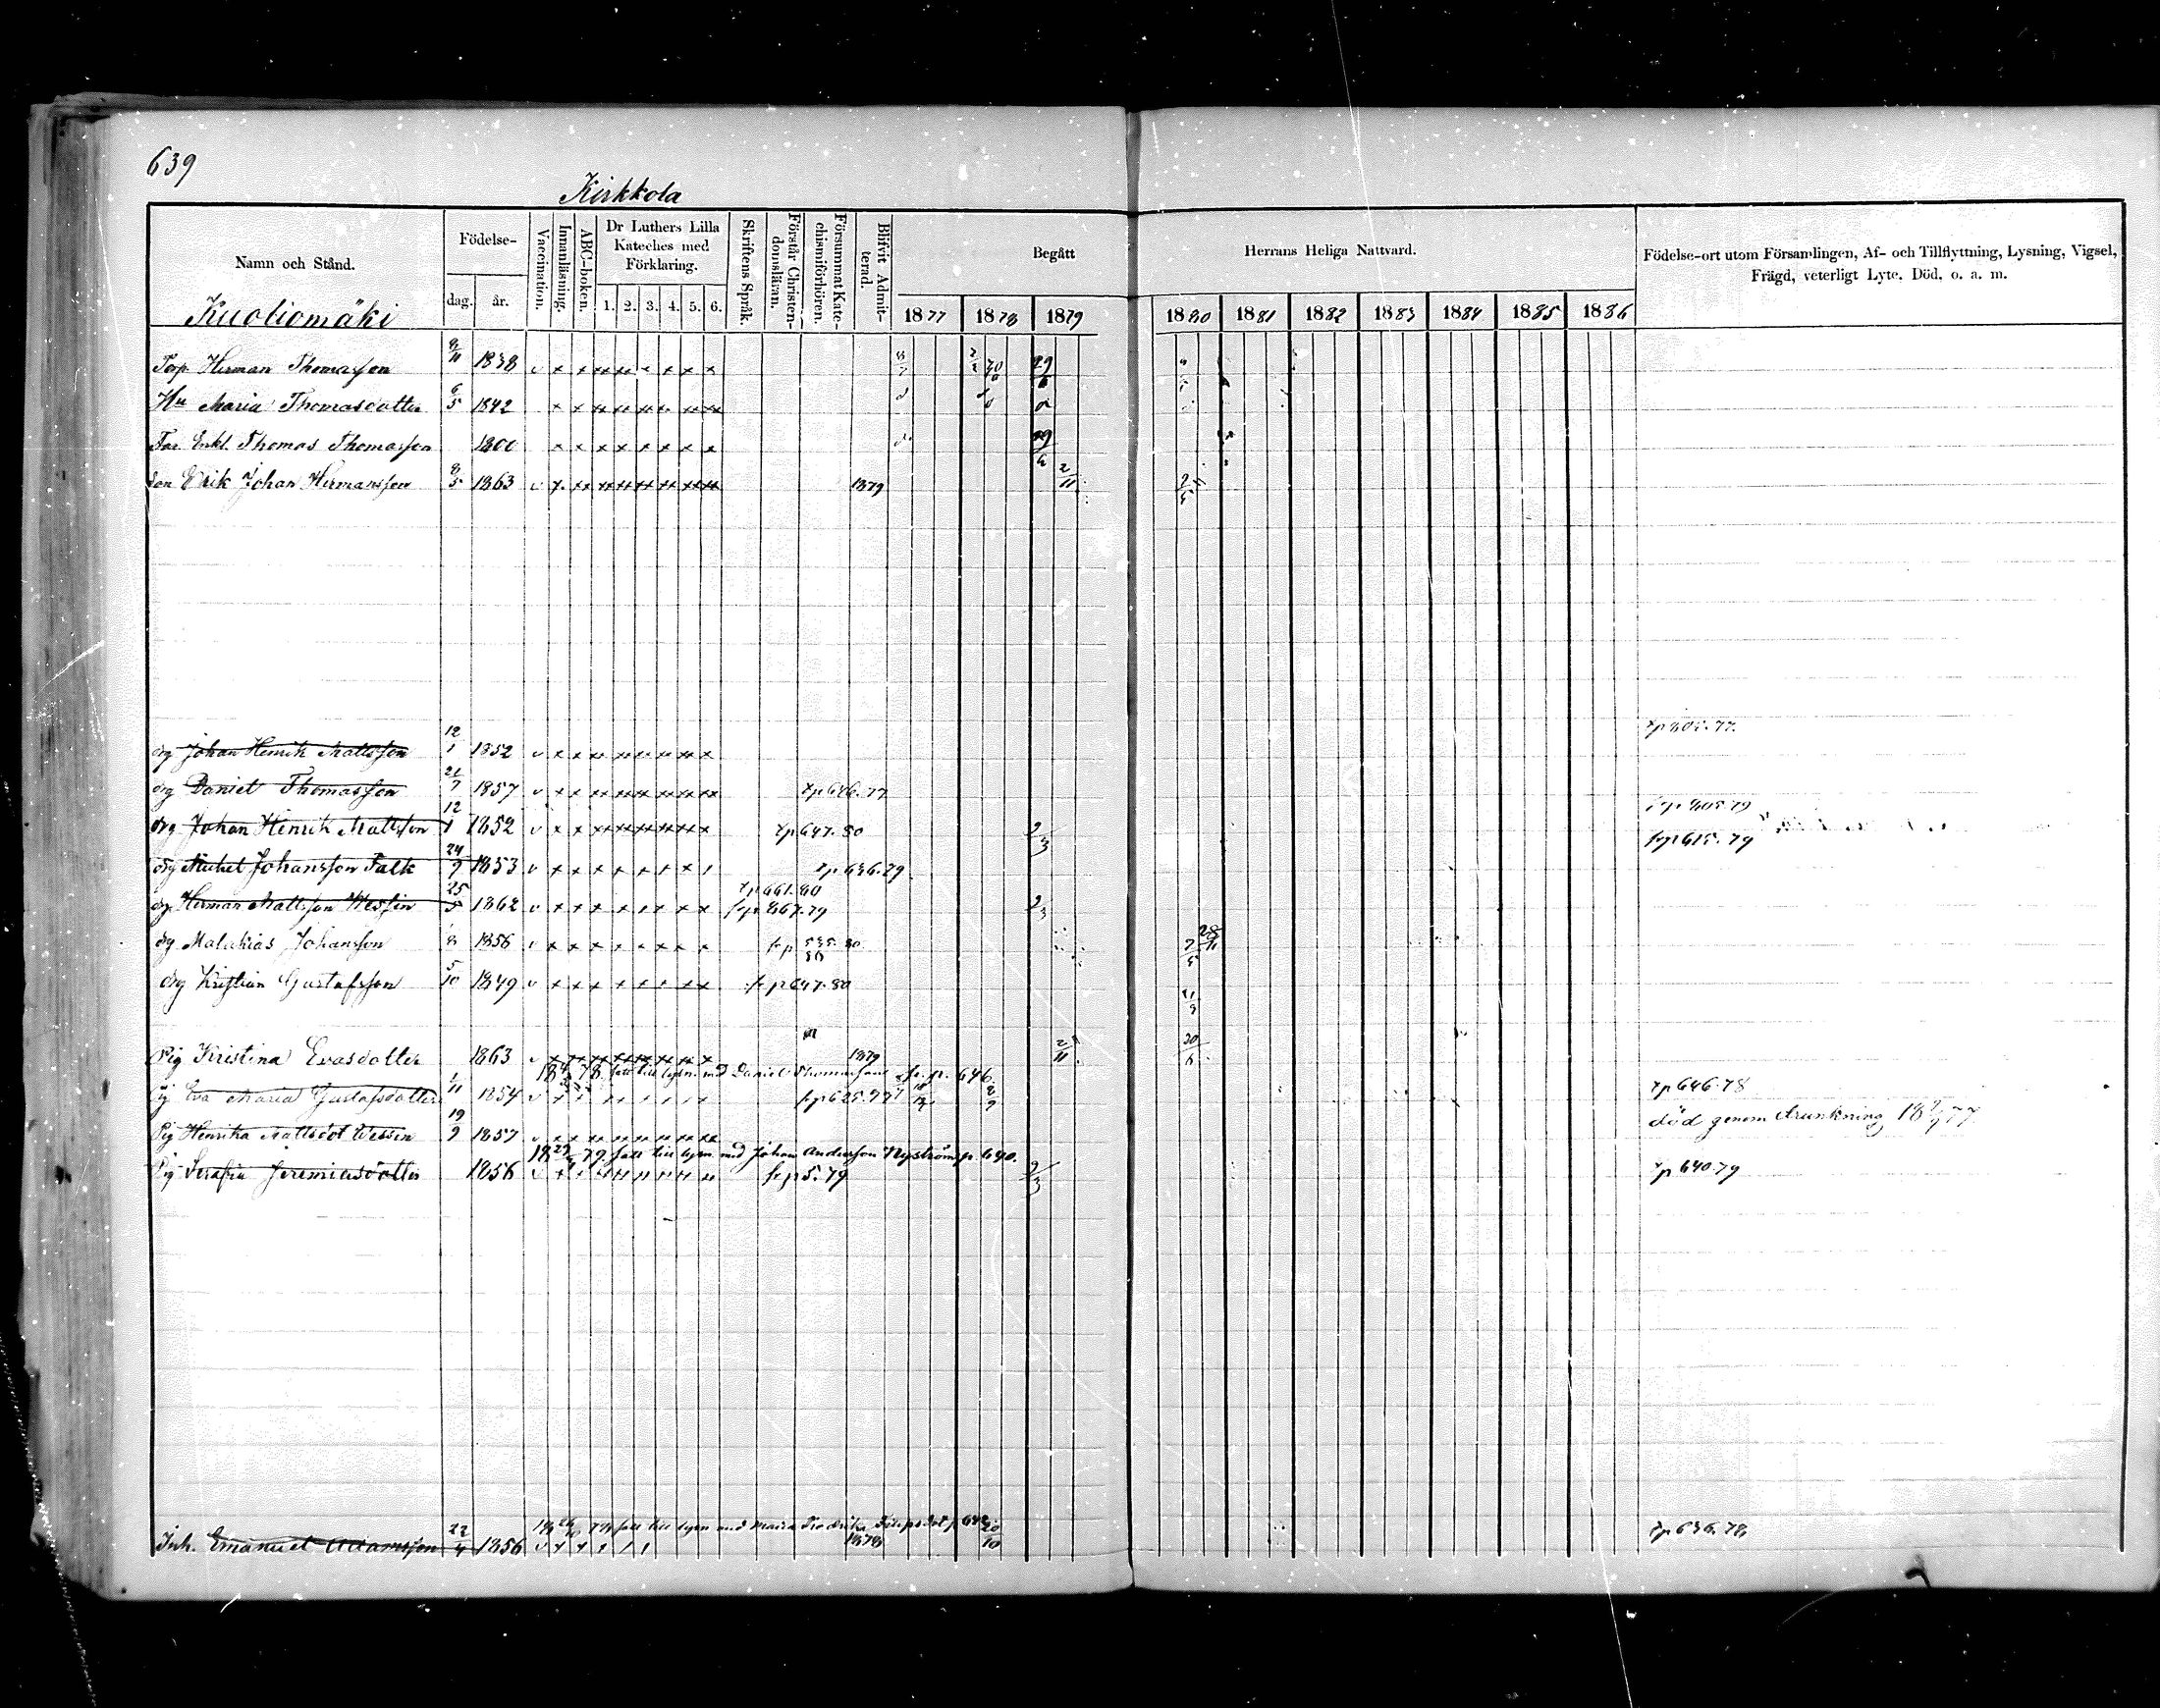 639
Kirkkola
Namn och Stånd.
Födelse-
dag.
år.
Vaccination.
Innanläsning.
ABC-boken.
Dr Luthers Lilla
Kateches med
Förklaring.
1. 2. 3. 4. 5. 6.
Skriftens Språk.
Förstår Christen-
domsläran.
Försummat Kate-
chismiförhören.
Blifvit Admit-
terad.
Begått
Herrans Heliga Nattvard.
1877 1878 1879 1880 1881 1882 1883 1884 1885 1886
Födelse-ort utom Församlingen, Af- och Tillflyttning, Lysning, Vigsel,
Frägd, veterligt Lyte, Död, o. a. m.
Kuoliomäki
Torp Herman Thomasson 1838
Hu Maria Thomasdotter 6/5 1842
Far Enkl. Thomas Thomasson 1800
Son Erik Johan Hermansson 8/5 1863 1879 2/11
drg Johan Henrik Mattsson 12/1 1852
drg Daniel Thomasson 1857 646.77
drg Johan Henrik Mattsson 12/1 1852 647.80 2/3
drg Mickel Johansson Falk 24/9 1853 636.79 615.79
661.80
drg Herman Mattsson Wessin 25/5 1862 867.79 2/3
drg Malakias Johansson 1856
drg Kristian Gustafsson 5/10 1849 647.80
Pig Kristina Evasdotter 1863 1879 2/11
78 fatt till lysn. md Daniel Thomasson 646.
Eva Maria Gustafsdotter 1/11 1854 625.77 646.78
Pig Henrika Mattsdot Wessin 19/9 1857 död genom drunkning
79 fatt till lysn. md Johan Andersson Nyström p. 640.
Pig Serafia Jeremiasdotter 1856 5.79 2/3 640.79
78 fatt till lysn md Maria Fredrika
Inh. Emanuel Adamsson 22/4 1856 1878 20/10 636.78